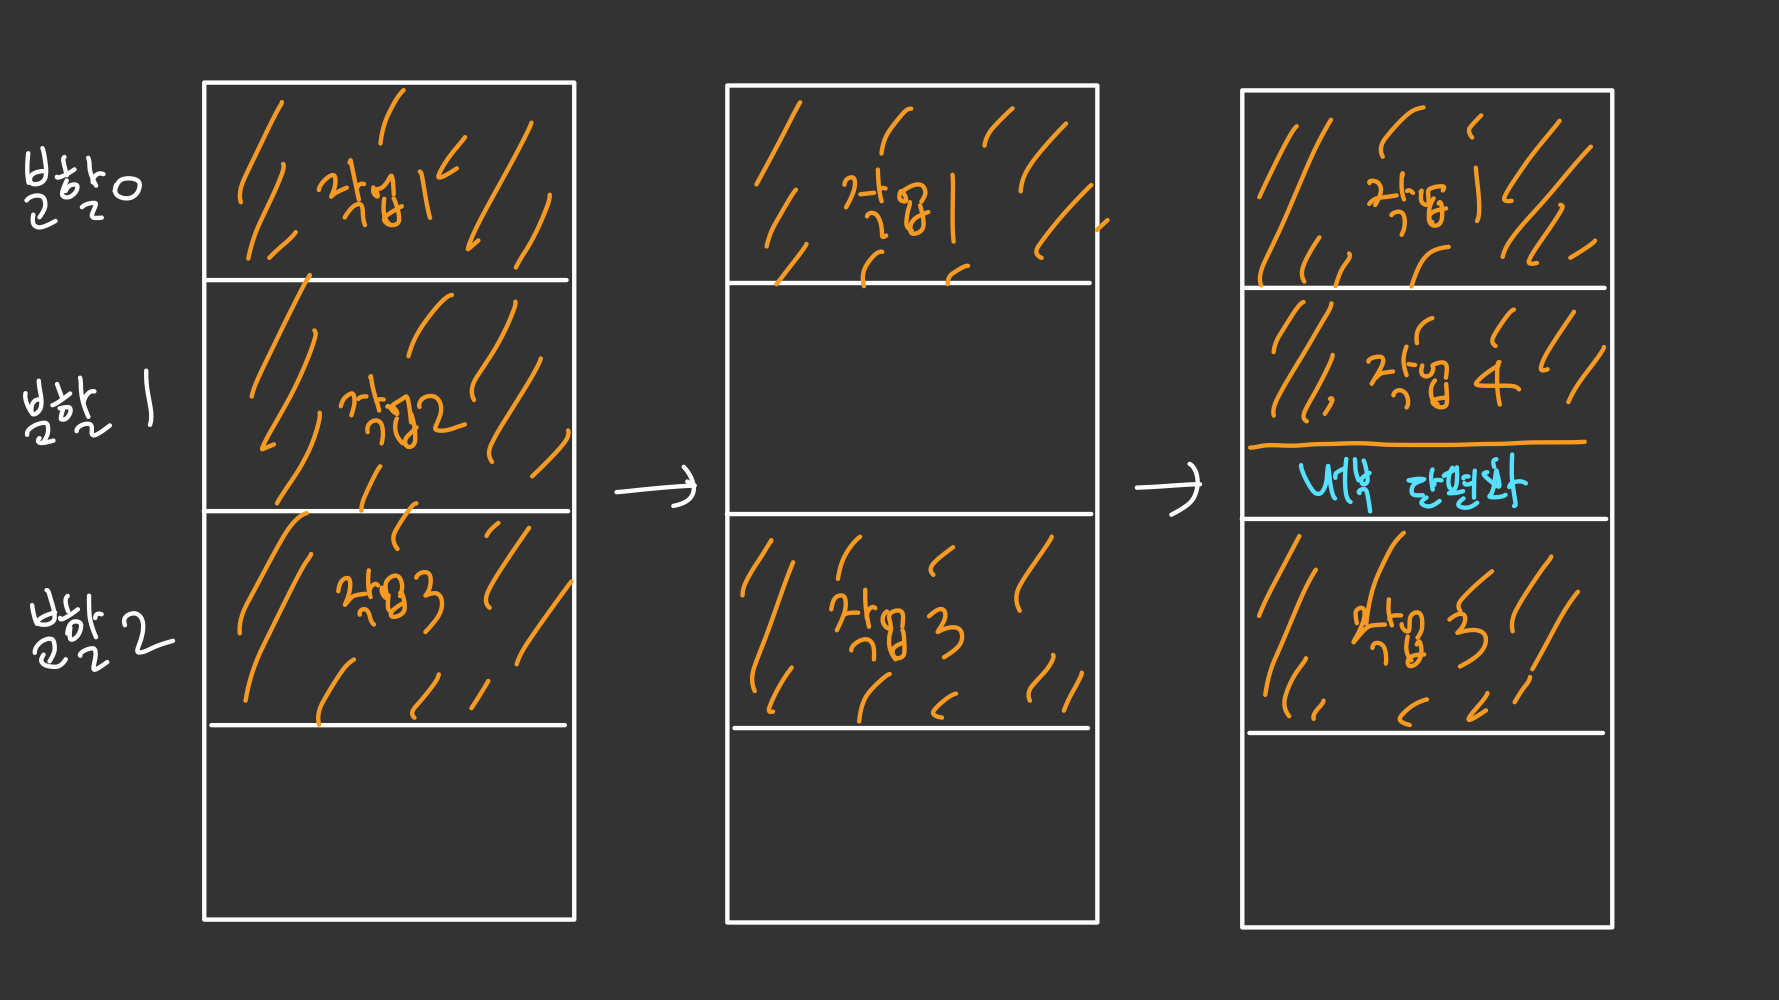 분할0
작업1
분할 1
작업2
분할 2
작업3
작업1
작업 3
작업 1
작업 4
내부 단편화
작업 3